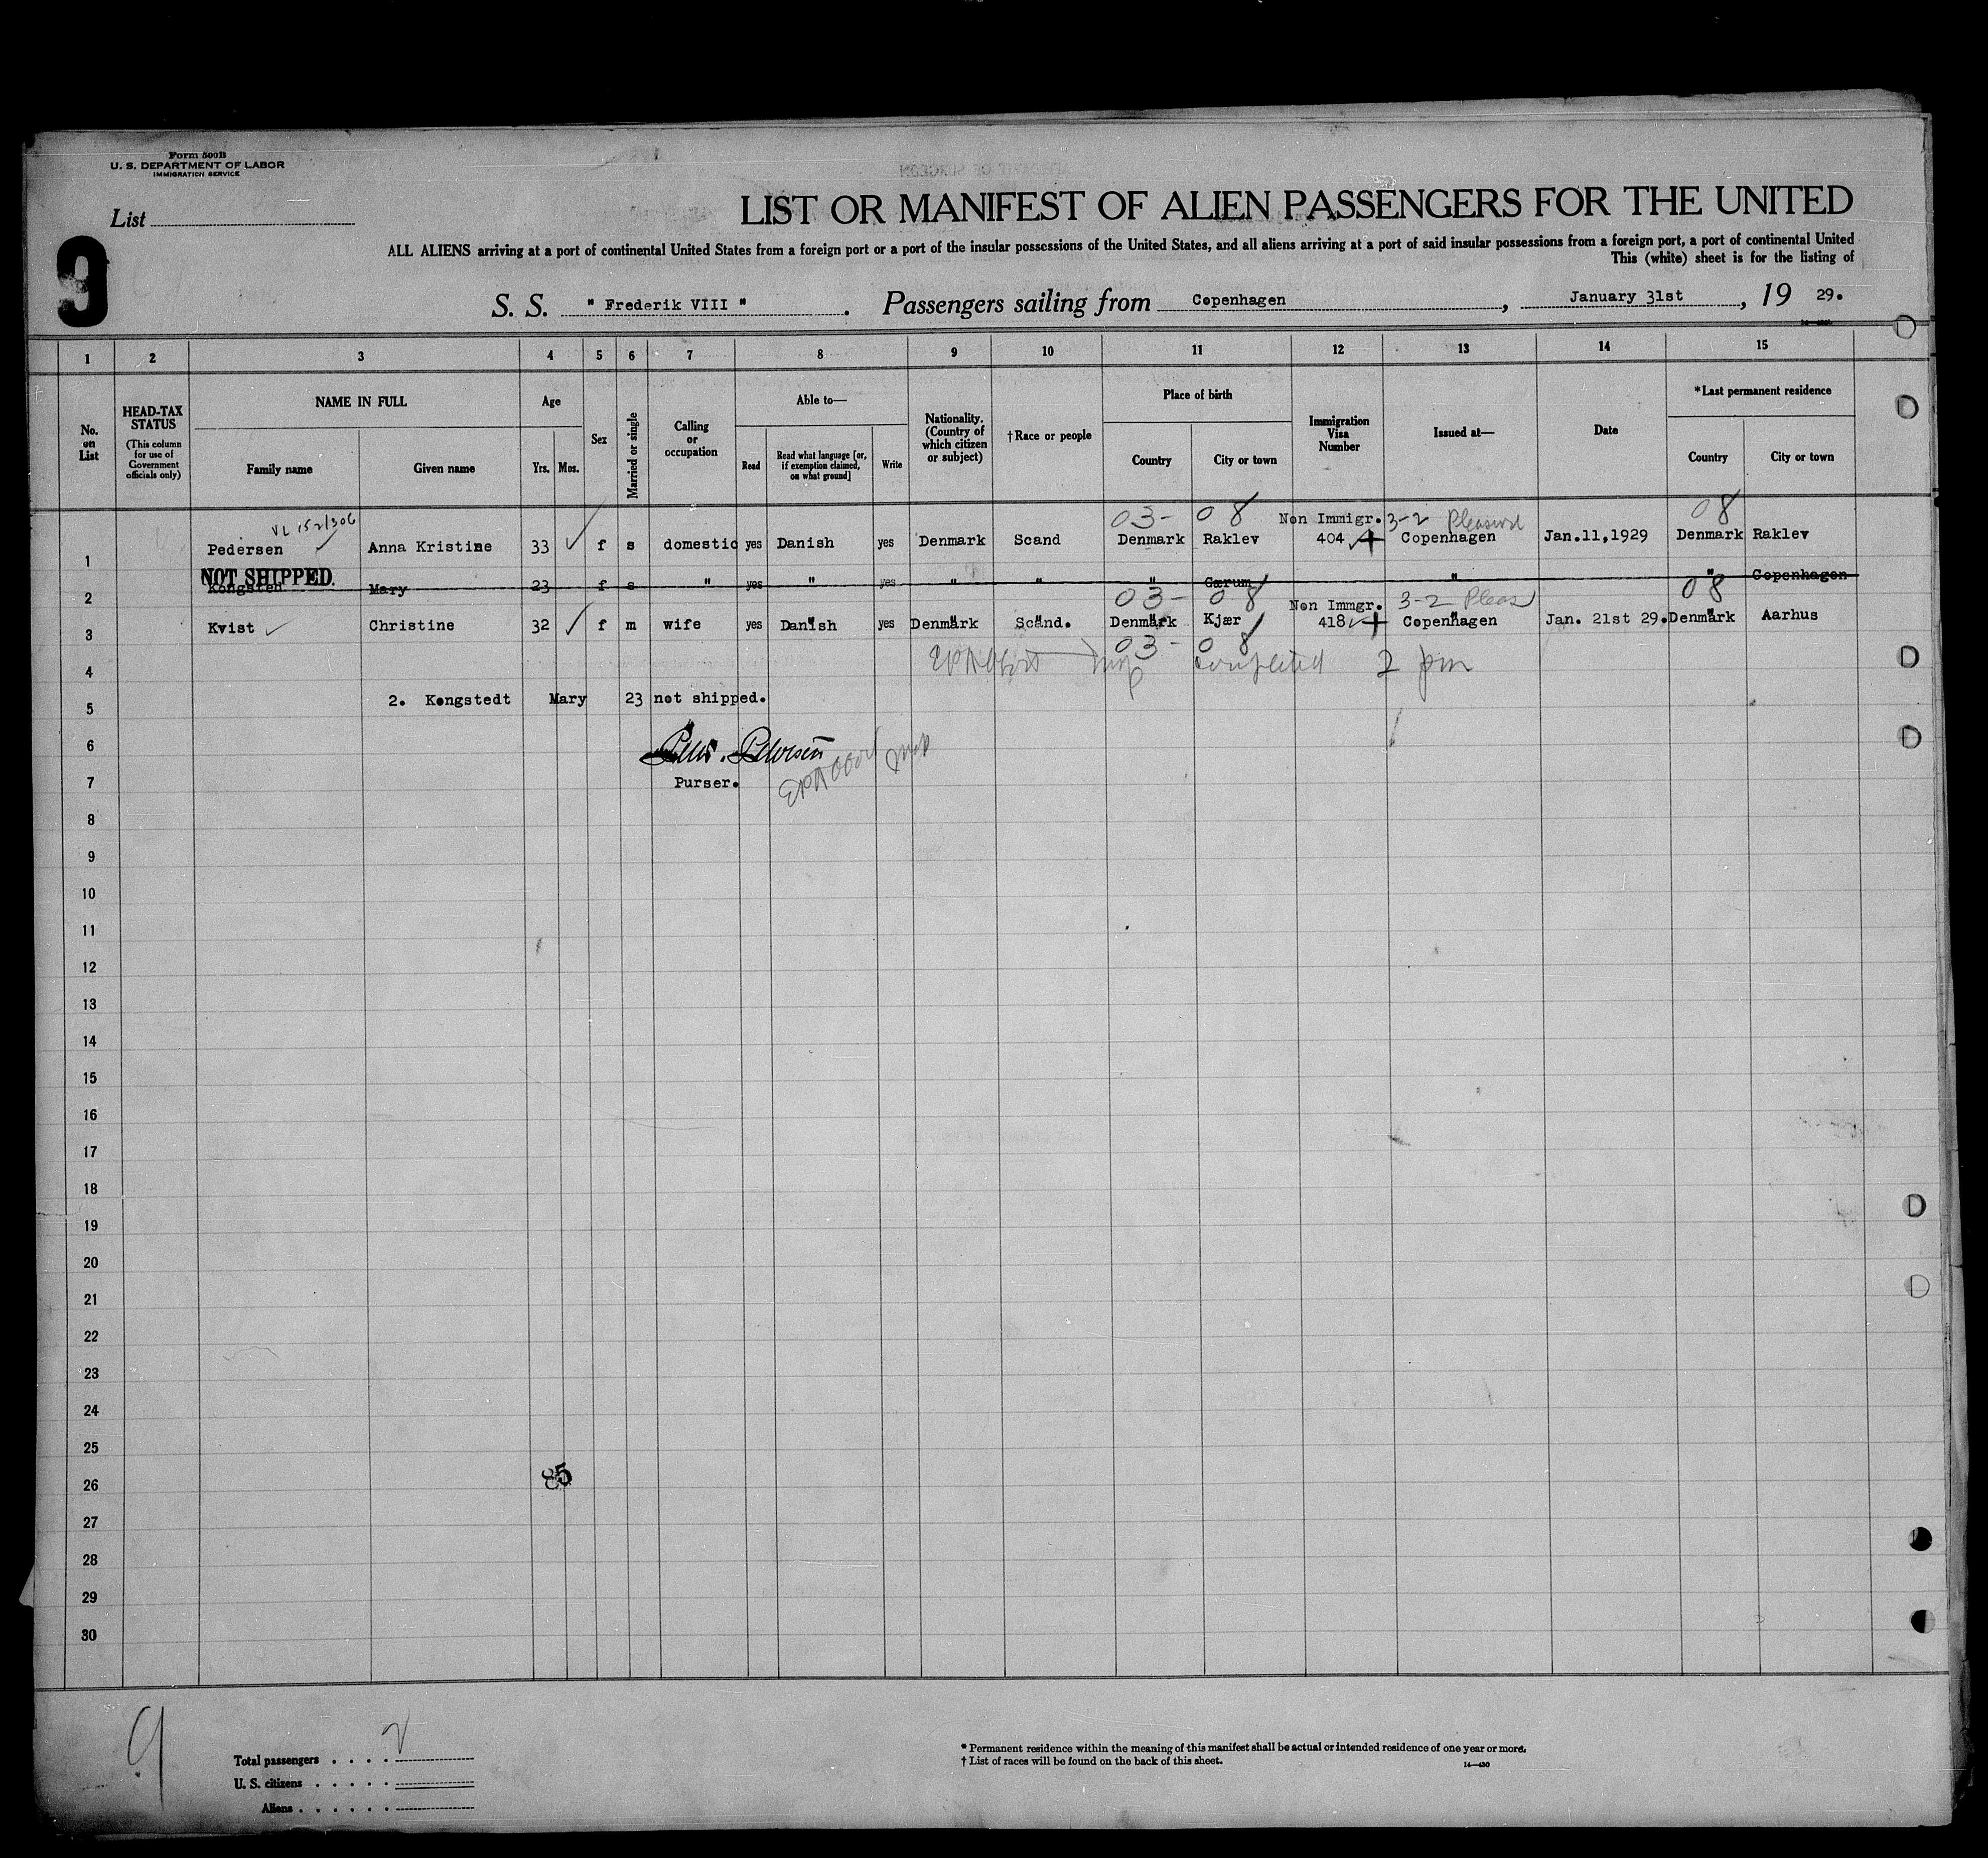 Form 500B
U. S. DEPARTMENT OF LABOR
IMMIGRATION SERVICE
List
9
LIST OR MANIFEST OF ALIEN PASSENGERS FOR THE UNITED
ALL ALIENS arriving at a port of continental United States from a foreign port or a port of the insular possessions of the United States, and all aliens arriving at a port of said insular possessions from a foreign port, a port of continental United
This (white) sheet is for the listing of
S. S. " Frederik VIII " . Passengers sailing from Copenhagen , January 31st , 19 29.
1 2 3 4 5 6 7 8 9 10 11 12 13 14 15
No. on List
HEAD-TAX STATUS (This column for use of Government officials only)
NAME IN FULL
Family name Given name
Age
Yrs. Mos.
Sex
Married or single
Calling or occupation
Able to—
Read
Read what language [or, if exemption claimed, on what ground]
Write
Nationality. (Country of which citizen or subject)
†Race or people
Place of birth
Country City or town
Immigration Visa Number
Issued at—
Date
*Last permanent residence
Country City or town
VL 152/306 03- 08 Non Immigr. 3-2 08
1 Pedersen Anna Kristine 33 f s domestic yes Danish yes Denmark Scand Denmark Raklev 404 Copenhagen Jan.11,1929 Denmark Raklev
NOT SHIPPED.
2 Kongsted Mary 23 f s " yes " yes " " " Gærum " " Copenhagen
03- 08 Non Immgr. 3-2 Pleas 08
3 Kvist Christine 32 f m wife yes Danish yes Denmark Scand. Denmark Kjær 418 Copenhagen Jan. 21st 29. Denmark Aarhus
03- 08
4 completed 2 pm
5 2. Kongstedt Mary 23 not shipped.
6
7 Purser.
8
9
10
11
12
13
14
15
16
17
18
19
20
21
22
23
24
25
26 85
27
28
29
30
9
Total passengers . . . . 2
U. S. citizens . . . . .
Aliens . . . . . .
* Permanent residence within the meaning of this manifest shall be actual or intended residence of one year or more.
† List of races will be found on the back of this sheet.
14—430